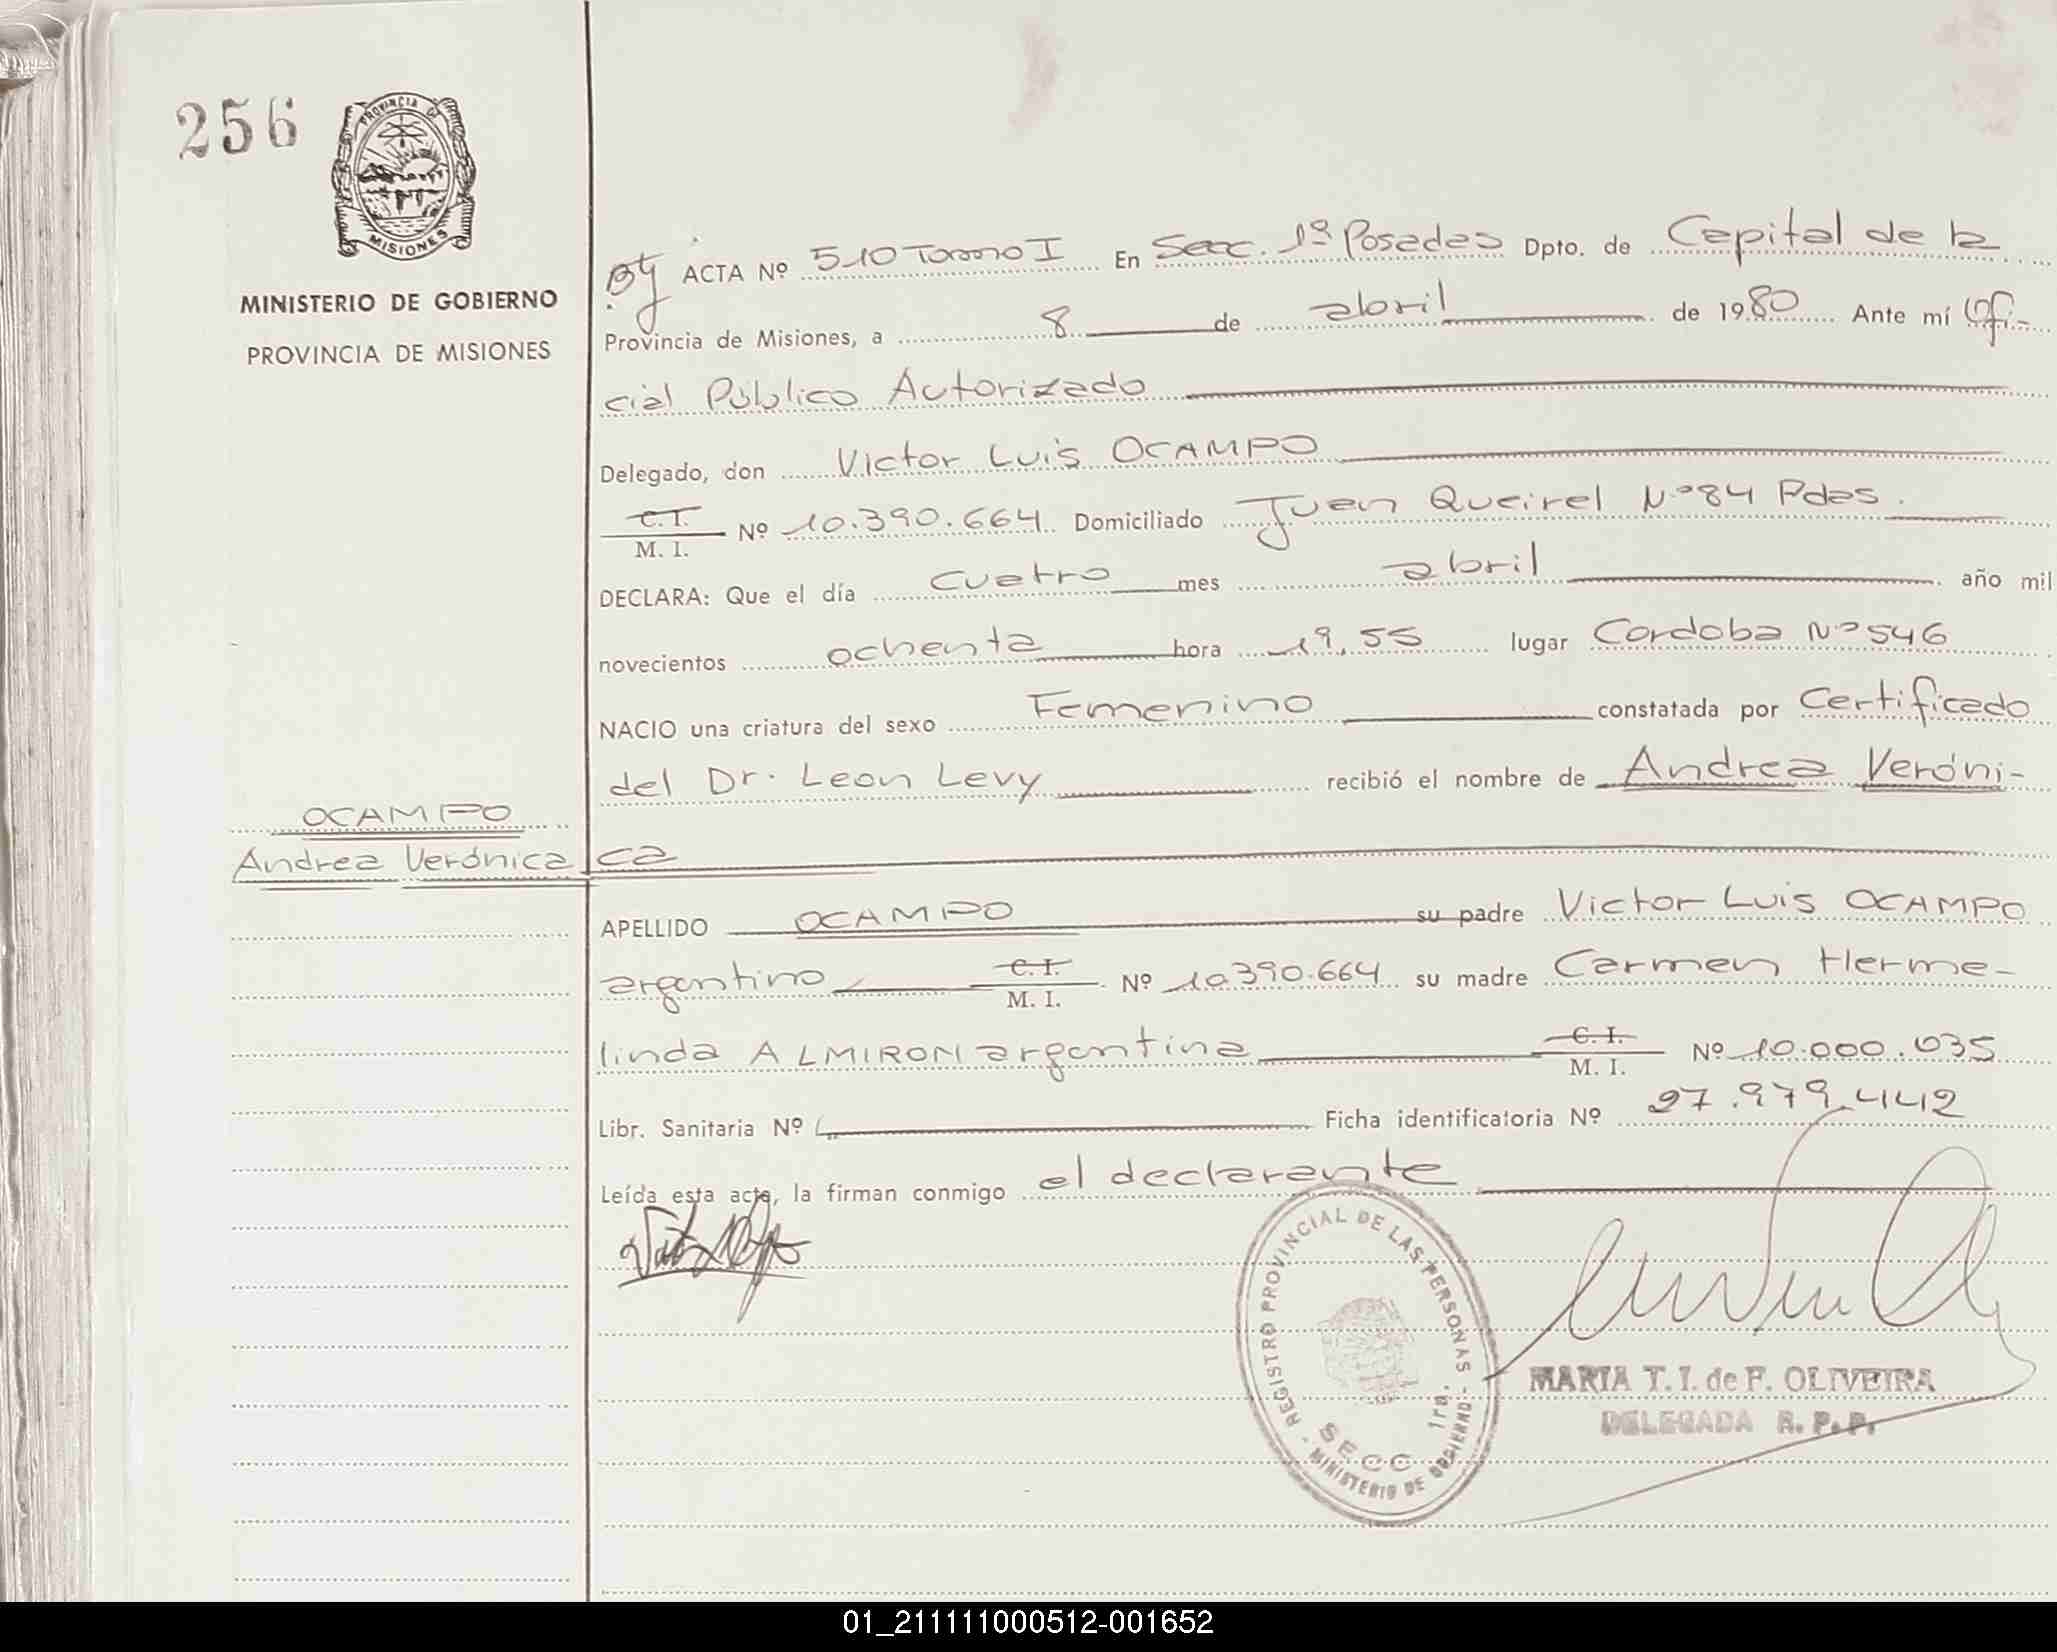 256
PROVINCIA DE
MISIONES
MINISTERIO DE GOBIERNO
PROVINCIA DE MISIONES
OCAMPO
Andrea Verónica
ACTA Nº 510 Tomo I En Secc. 1º Posadas Dpto. de Capital de la
Provincia de Misiones, a 8 de abril de 1980 Ante mí Ofi-
cial Público Autorizado
Delegado, don Victor Luis OCAMPO
C.I. M. I. Nº 10.390.664 Domiciliado Juan Queirel Nº 84 Pdas.
DECLARA: Que el día cuatro mes abril año mil
novecientos ochenta hora 19,55 lugar Cordoba Nº 546
NACIO una criatura del sexo Femenino constatada por Certificado
del Dr. Leon Levy recibió el nombre de Andrea Veróni-
ca
APELLIDO OCAMPO su padre Victor Luis OCAMPO
argentino C. I. M. I. Nº 10.390.664 su madre Carmen Herme-
linda ALMIRON argentina C. I. M. I. Nº 10.000.035
Libr. Sanitaria Nº Ficha identificatoria Nº 27.979.442
Leída esta acta, la firman conmigo el declarante
REGISTRO PROVINCIAL DE LAS PERSONAS - MINISTERIO DE GOBIERNO -
SECC. 1ra.
MARIA T. I. de F. OLIVEIRA
DELEGADA R. P. P.
01_211111000512-001652